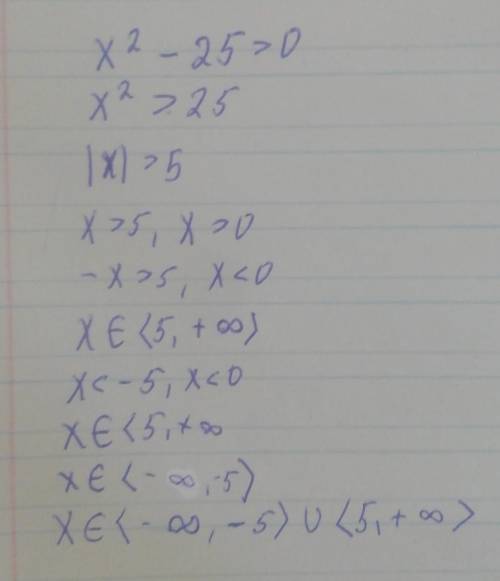 x² - 25 > 0
x² > 25
|x| > 5
x > 5, x > 0
-x > 5, x < 0
x ∈ ⟨5, +∞⟩
x < -5, x < 0
x ∈ ⟨5, +∞
x ∈ ⟨-∞, -5⟩
x ∈ ⟨-∞, -5⟩ ∪ ⟨5, +∞⟩